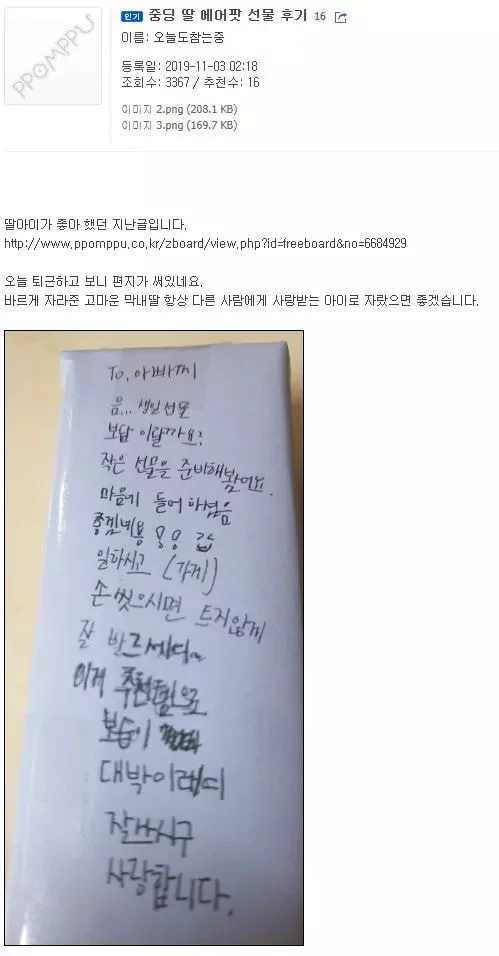 PPOMPPU
인기 중딩 딸 에어팟 선물 후기 16
이름: 오늘도참는중
등록일: 2019-11-03 02:18
조회수: 3367 / 추천수: 16
이미지 2.png (208.1 KB)
이미지 3.png (169.7 KB)
딸아이가 좋아 했던 지난글입니다.
http://www.ppomppu.co.kr/zboard/view.php?id=freeboard&no=6684929
오늘 퇴근하고 보니 편지가 써있네요.
바르게 자라준 고마운 막내딸 항상 다른 사람에게 사랑받는 아이로 자랐으면 좋겠습니다.
To. 아빠께
음... 생일선물
보답 이랄까요?
작은 선물을 준비해봤어요.
마음에 들어하셨음
좋겠네용
일하시고 (가게)
손 씻으시면 트지않게
잘 바르세영~
이게
보습이
대박이래띠
잘쓰시구
사랑합니다.